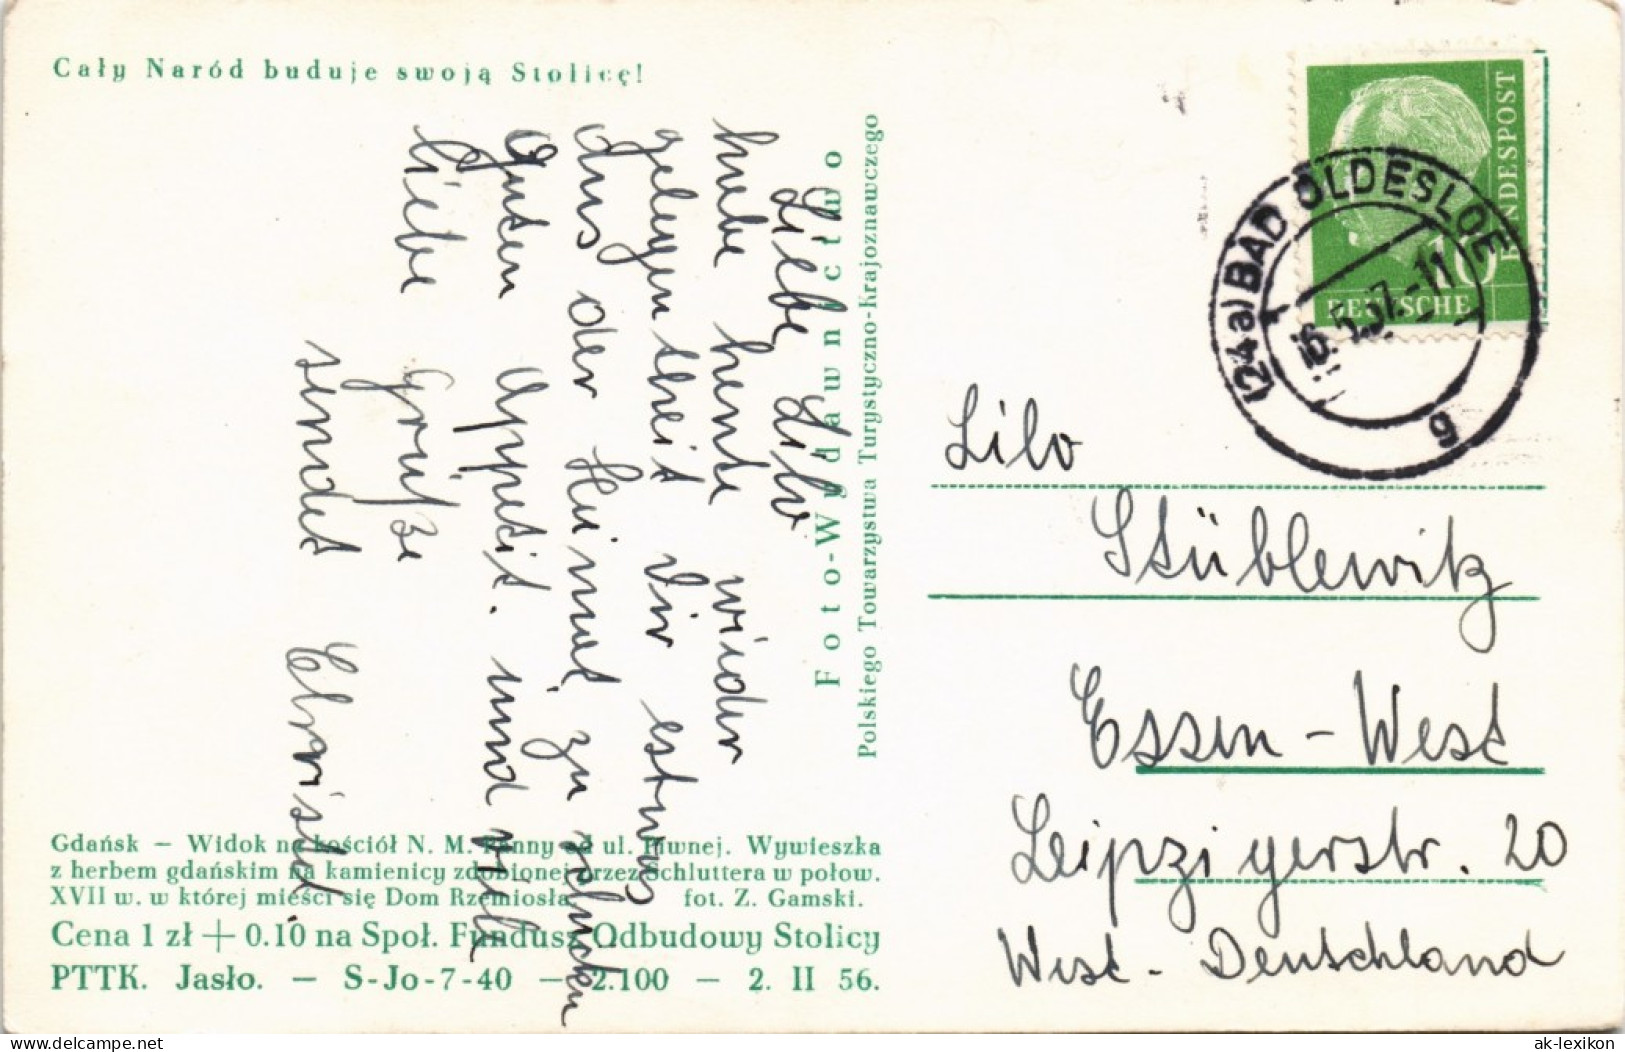 Cały Naród buduje swoją Stolicę!
Liebe Lilo
habe heute wieder
gelegentheit dir estwas
aus der Heimat zu schicken
Guten Appetit. und viele
liebe Grüße
sendet Christel
Foto-Wydawnictwo
Polskiego Towarzystwa Turystyczno-Krajoznawczego
Gdańsk — Widok na kościół N. M. Panny od ul. Piwnej. Wywieszka
z herbem gdańskim na kamienicy zdobionej przez Schluttera w połow.
XVII w. w której mieści się Dom Rzemiosła. fot. Z. Gamski.
Cena 1 zł + 0.10 na Społ. Fundusz Odbudowy Stolicy
PTTK. Jasło. — S-Jo-7-40 — 2.100 — 2. II 56.
DEUTSCHE
BUNDESPOST
10
(24a) BAD OLDESLOE
16.5.57.-11
g
Lilo
Stüblewitz
Essen - West
Leipzigerstr. 20
West - Deutschland
akpool.de
ak-lexikon